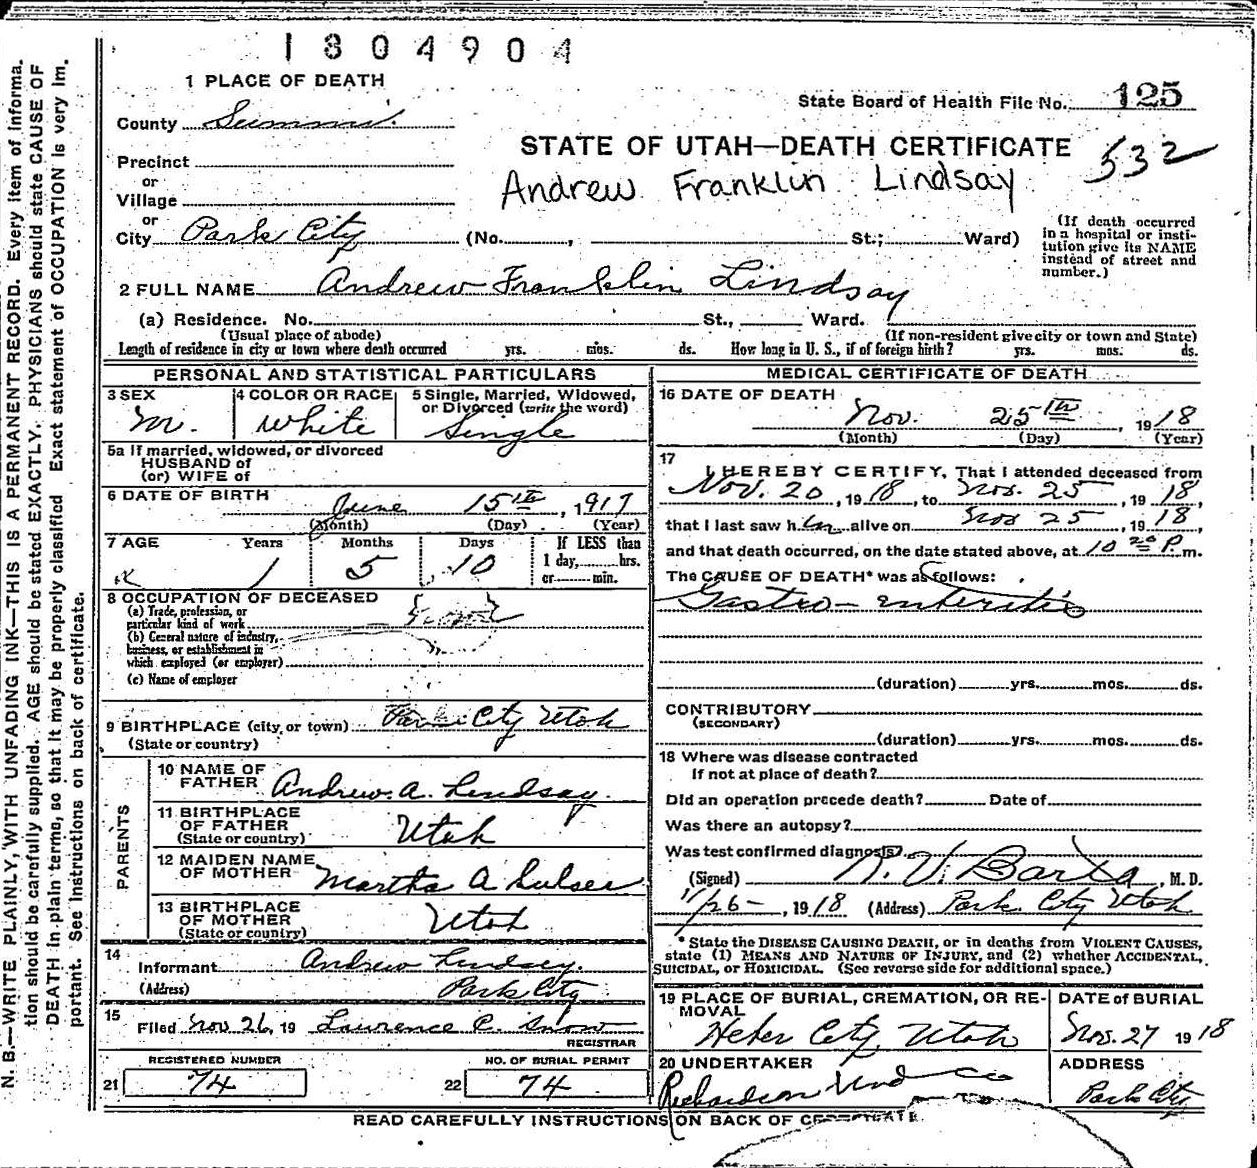 1304904
1 PLACE OF DEATH
State Board of Health File No. 125
County Summit
532
STATE OF UTAH—DEATH CERTIFICATE
Andrew Franklin Lindsay
Precinct
or
Village
or
City Park City (No. , St.; Ward)
(If death occurred in a hospital or insti-
tution give its NAME instead of street and number.)
2 FULL NAME Andrew Franklin Lindsay
(a) Residence. No. St., Ward.
(Usual place of abode) (If non-resident give city or town and State)
Length of residence in city or town where death occurred yrs. mos. ds. How long in U. S., if of foreign birth? yrs. mos. ds.
PERSONAL AND STATISTICAL PARTICULARS
3 SEX
m.
4 COLOR OR RACE
White
5 Single, Married, Widowed,
or Divorced (write the word)
Single
5a If married, widowed, or divorced
HUSBAND of
(or) WIFE of
6 DATE OF BIRTH
June 15th, 1917
(Month) (Day) (Year)
7 AGE Years Months Days If LESS than
1 day, hrs.
or min.
1 5 10
8 OCCUPATION OF DECEASED
(a) Trade, profession, or
particular kind of work
(b) General nature of industry,
business, or establishment in
which employed (or employer)
(c) Name of employer
9 BIRTHPLACE (city, or town) Park City Utah
(State or country)
PARENTS
10 NAME OF
FATHER Andrew. A. Lindsay.
11 BIRTHPLACE
OF FATHER
(State or country) Utah
12 MAIDEN NAME
OF MOTHER Martha A
13 BIRTHPLACE
OF MOTHER
(State or country) Utah
14
Informant Andrew Lindsey.
(Address) Park City
15
Filed Nov 26, 19 Laurence C. Snow
REGISTRAR
REGISTERED NUMBER NO. OF BURIAL PERMIT
21 74 22 74
MEDICAL CERTIFICATE OF DEATH
16 DATE OF DEATH
Nov. 25th, 1918
(Month) (Day) (Year)
17
I HEREBY CERTIFY, That I attended deceased from
Nov. 20, 1918, to Nov. 25, 1918,
that I last saw him alive on Nov 25, 1918,
and that death occurred, on the date stated above, at 10 20 P.m.
The CAUSE OF DEATH* was as follows:
Gastro-enteritis
(duration) yrs. mos. ds.
CONTRIBUTORY
(SECONDARY)
(duration) yrs. mos. ds.
18 Where was disease contracted
If not at place of death?
Did an operation precede death? Date of
Was there an autopsy?
Was test confirmed diagnosis?
(Signed) , M. D.
11/26-, 1918 (Address) Park City Utah
* State the DISEASE CAUSING DEATH, or in deaths from VIOLENT CAUSES,
state (1) MEANS AND NATURE OF INJURY, and (2) whether ACCIDENTAL,
SUICIDAL, or HOMICIDAL. (See reverse side for additional space.)
19 PLACE OF BURIAL, CREMATION, OR RE-
MOVAL
Heber City, Utah
DATE of BURIAL
Nov. 27 1918
20 UNDERTAKER
Richardson Und Co
ADDRESS
Park City
READ CAREFULLY INSTRUCTIONS ON BACK OF CERTIFICATE
N. B.—WRITE PLAINLY, WITH UNFADING INK—THIS IS A PERMANENT RECORD. Every item of informa-
tion should be carefully supplied. AGE should be stated EXACTLY. PHYSICIANS should state CAUSE OF
DEATH in plain terms, so that it may be properly classified. Exact statement of OCCUPATION is very im-
portant. See instructions on back of certificate.